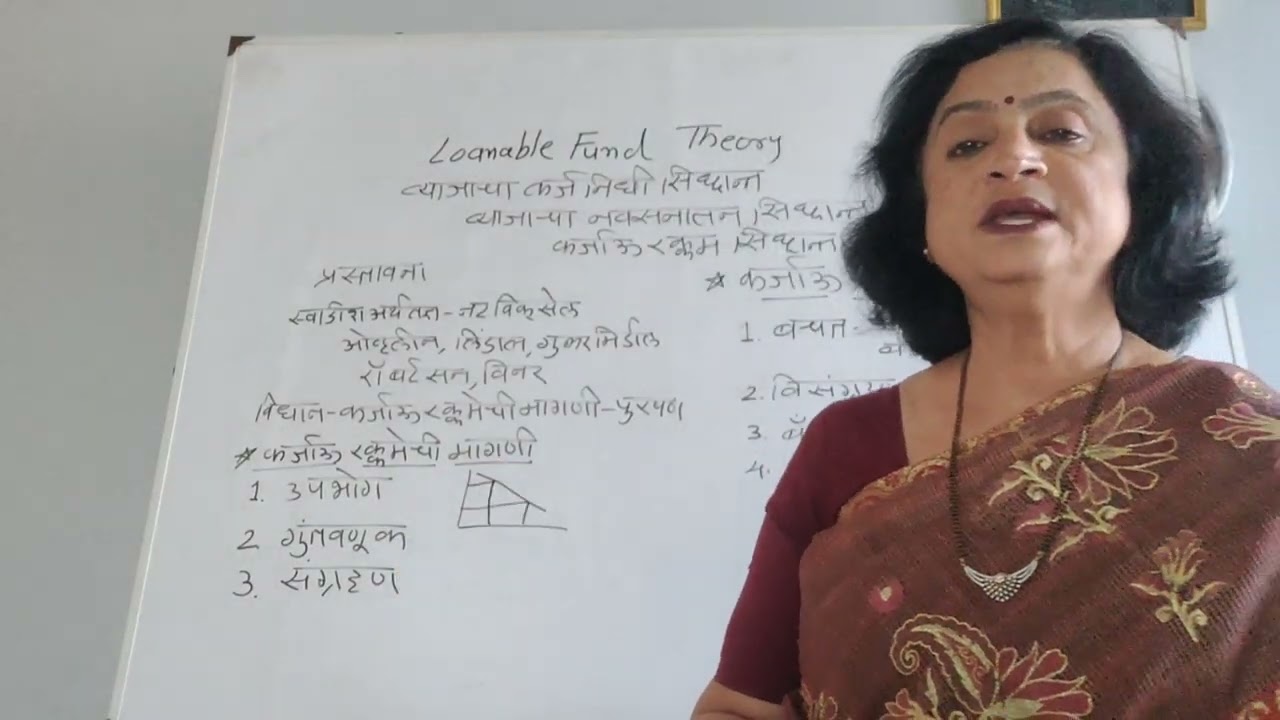 Loanable Fund Theory
व्याजाचा कर्ज निधी सिध्दान्त
व्याजाचा नवसनातन सिध्दान्त
कर्जाऊ रक्कम सिध्दान
प्रस्तावना
स्वीडीश अर्थतज्ञ - नट विक्सेल
ओहलीन, लिंडाल, गुनार मिर्डाल
रॉबर्टसन, विनर
विधान - कर्जाऊ रक्कमेची मागणी - पुरवठा
* कर्जाऊ रक्कमेची मागणी
1. उपभोग
2 गुंतवणूक
3. संग्रहण
* कर्जाऊ
1. बचत -
2. विसंग्रहण
3.
4.